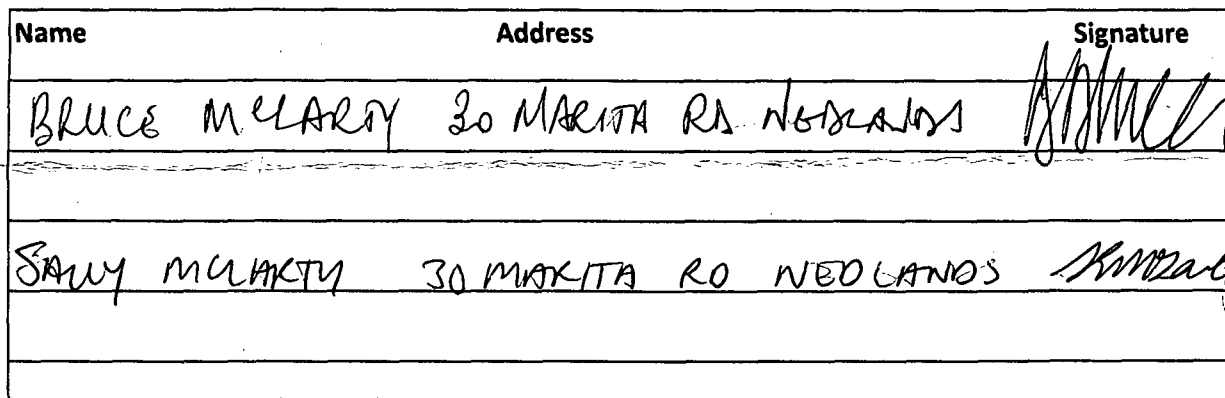 Name Address Signature
BRUCE MCLARTY 30 MARITA RD NEDLANDS
SALLY MCLARTY 30 MARITA RD NEDLANDS